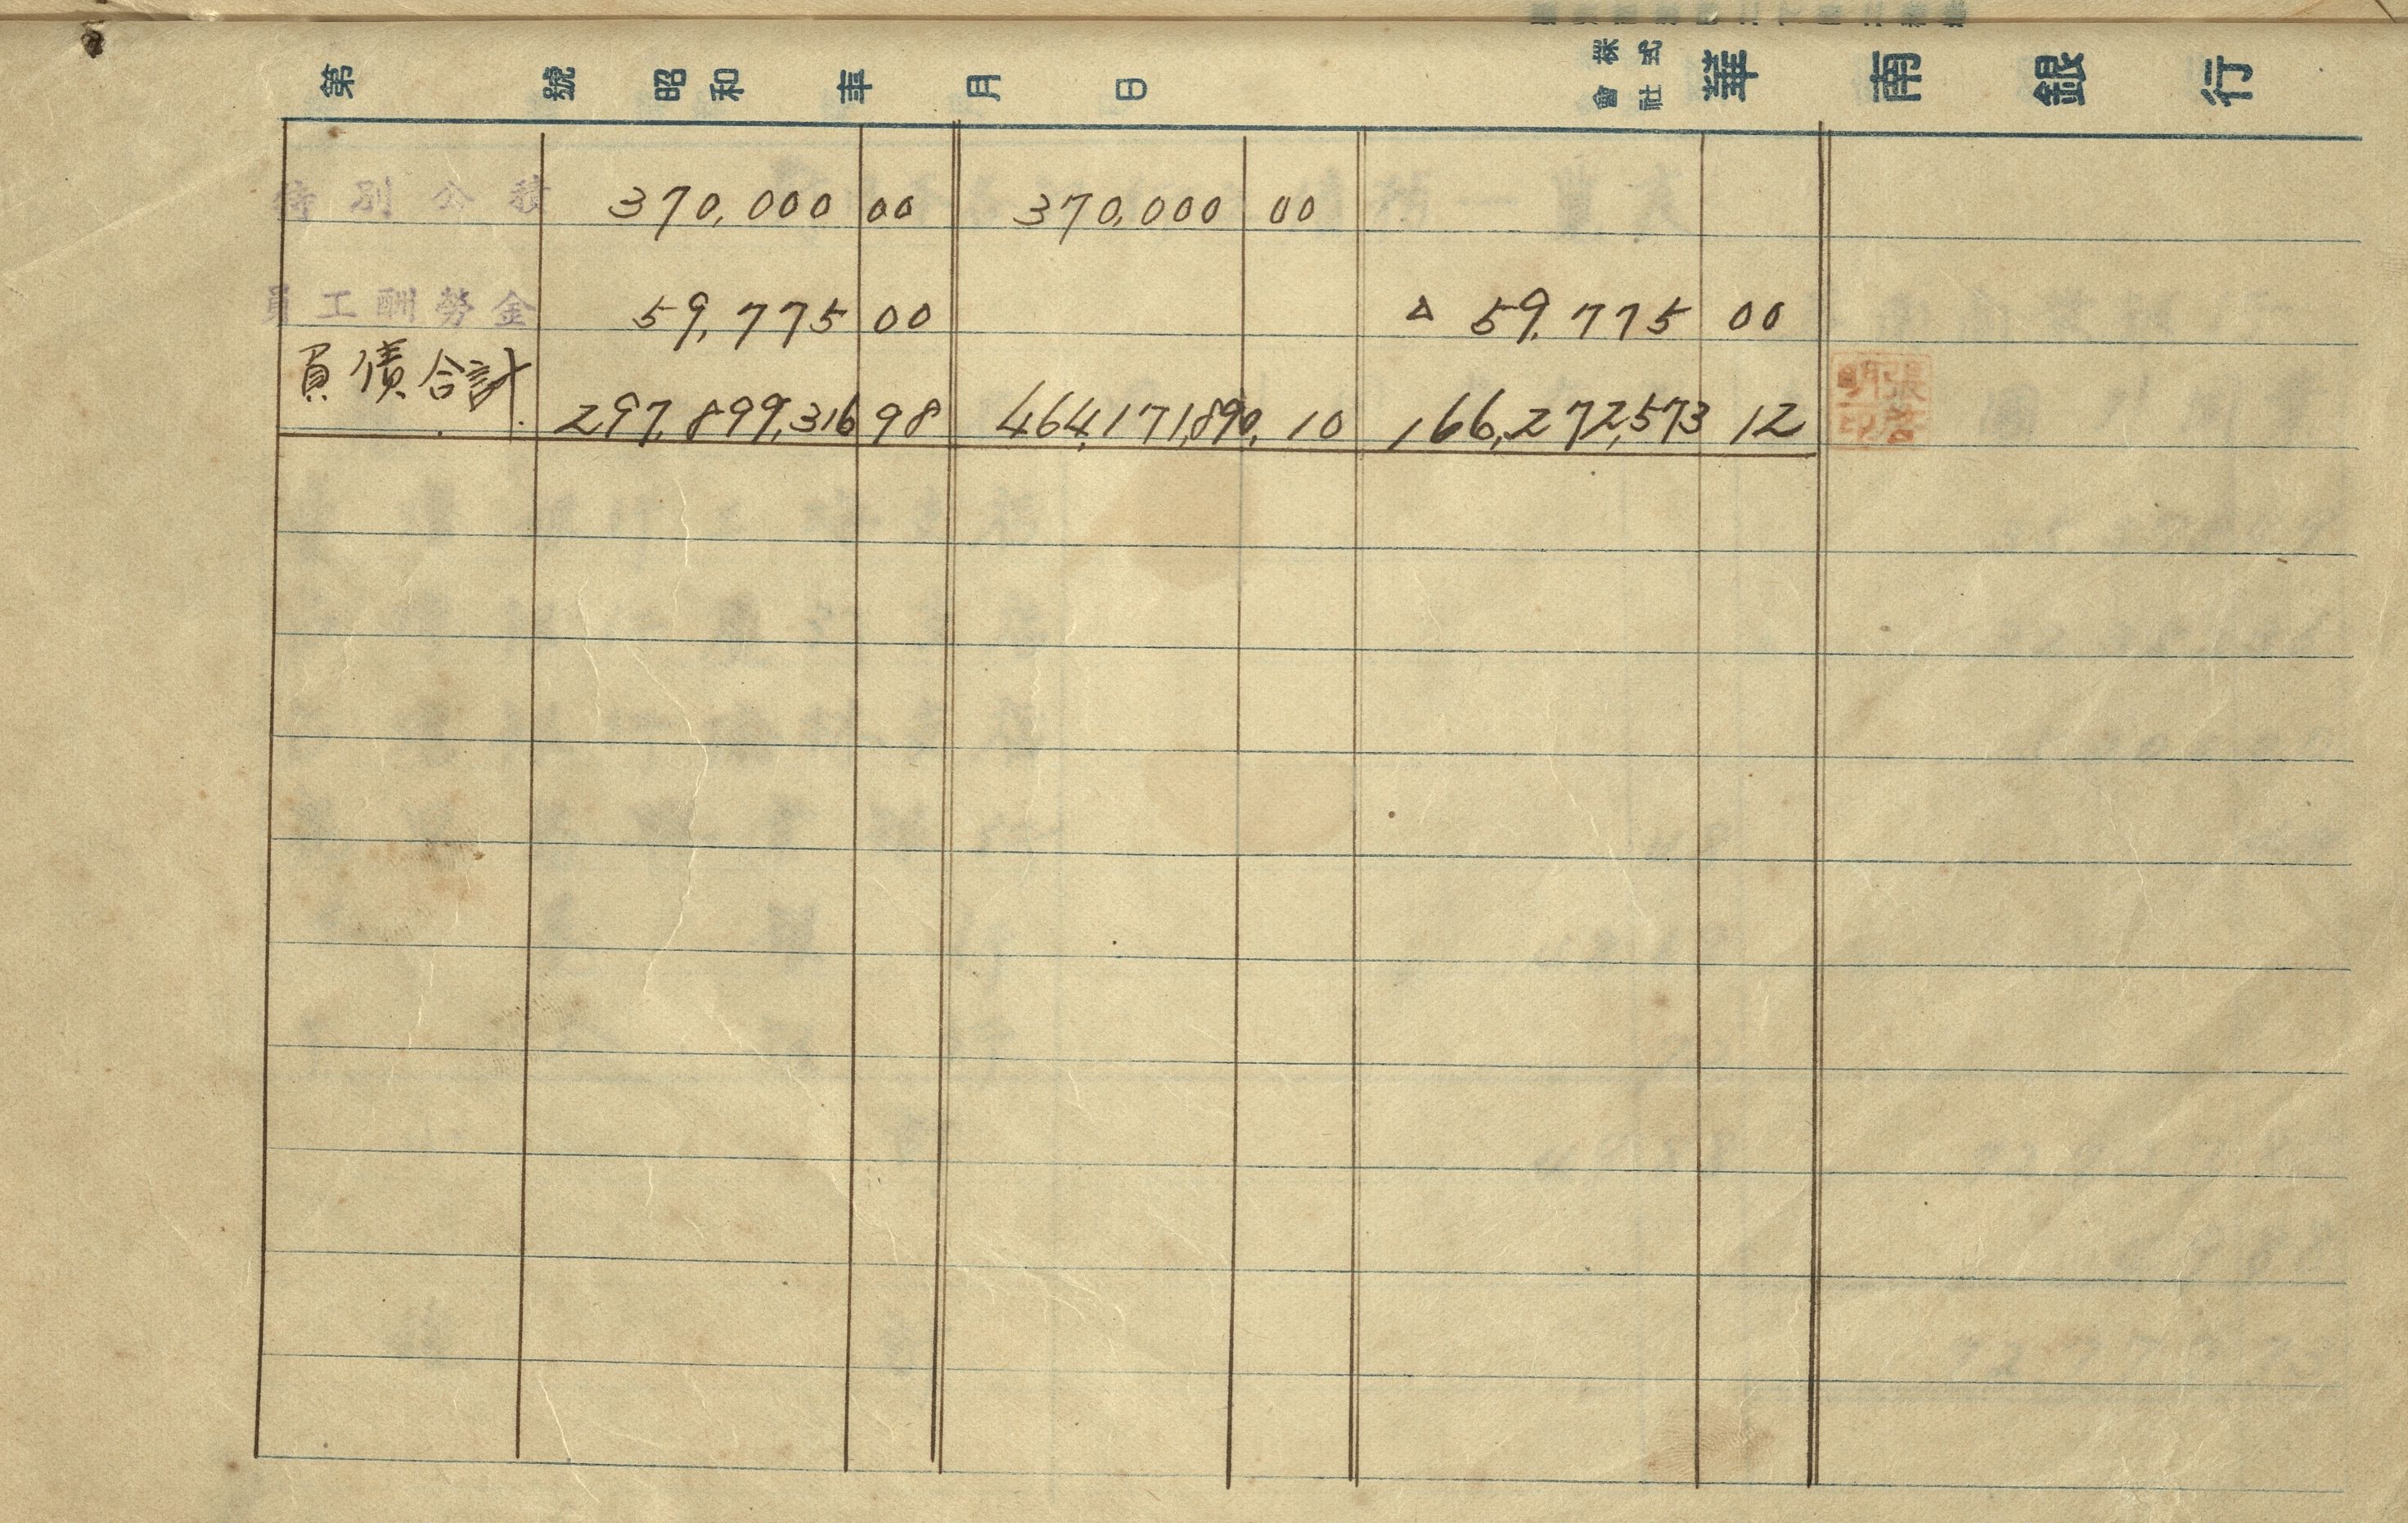 第 號 昭和 年 月 日 株式會社 華南銀行
特別公積 370,000 00 370,000 00
員工酬勞金 59,775 00 △ 59,775 00
負債合計 297,899,316 98 464,171,890.10 166,272,573 12